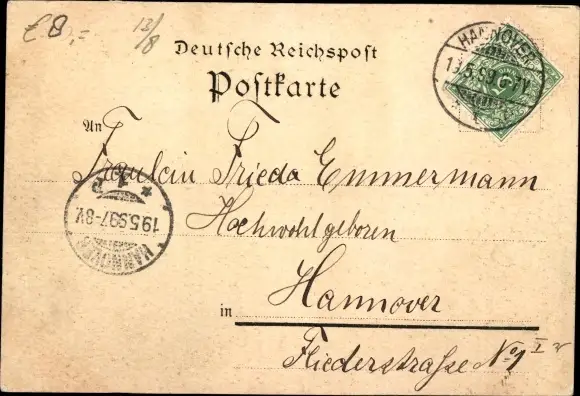 € 8,=
13/8
Deutsche Reichspost
Postkarte
HANNOVER
An
Fräulein Frieda Emmermann
Hochwohlgeboren
in Hannover
Fliederstraße No 1 I
HANNOVER
19.5.99.7-8V.
* 1 P